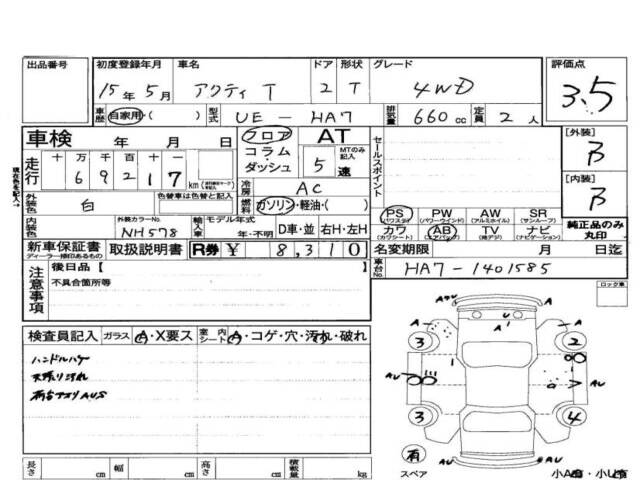 出品番号 初度登録年月 車名 ドア 形状 グレード 評価点
15年5月 アクティ T 2 T 4WD 3.5
車歴 自家用・( ) 型式 UE - HA7 排気量 660 cc 定員 2 人
車検 年 月 日 フロア AT
コラム・ダッシュ 5 MTのみ記入 速
走行 十 万 千 百 十 一
6 9 2 1 7 km
冷房 AC
外装色 白 色替車は色替と記入 燃料 ガソリン・軽油・( )
内装色 外装カラーNo. NH578 輸入車 モデル年式 年・不明 D車・並 右H・左H
新車保証書 ディーラー捺印あるもの 取扱説明書 R券 ¥ 8,310
セールスポイント
[外装] B
[内装] B
PS (パワステ) PW (パワーウインド) AW (アルミホイル) SR (サンルーフ)
カワ (カワシート) AB (エアバッグ) TV (地デジ) ナビ (ナビゲーション)
純正品のみ丸印
名変期限 月 日迄
車台No. HA7-1401585
現在色を記入→
注意事項 後日品【 】
不具合箇所等
ロック車
検査員記入 ガラス A・X要ス 室内シート A・コゲ・穴・汚れ・破れ
ハンドルハゲ
天張り汚れ
AU
A U
3 2
AU AU
3 4
有 スペア
AU
小A有・小U有
長さ cm 幅 cm 高さ cm 積載量 kg